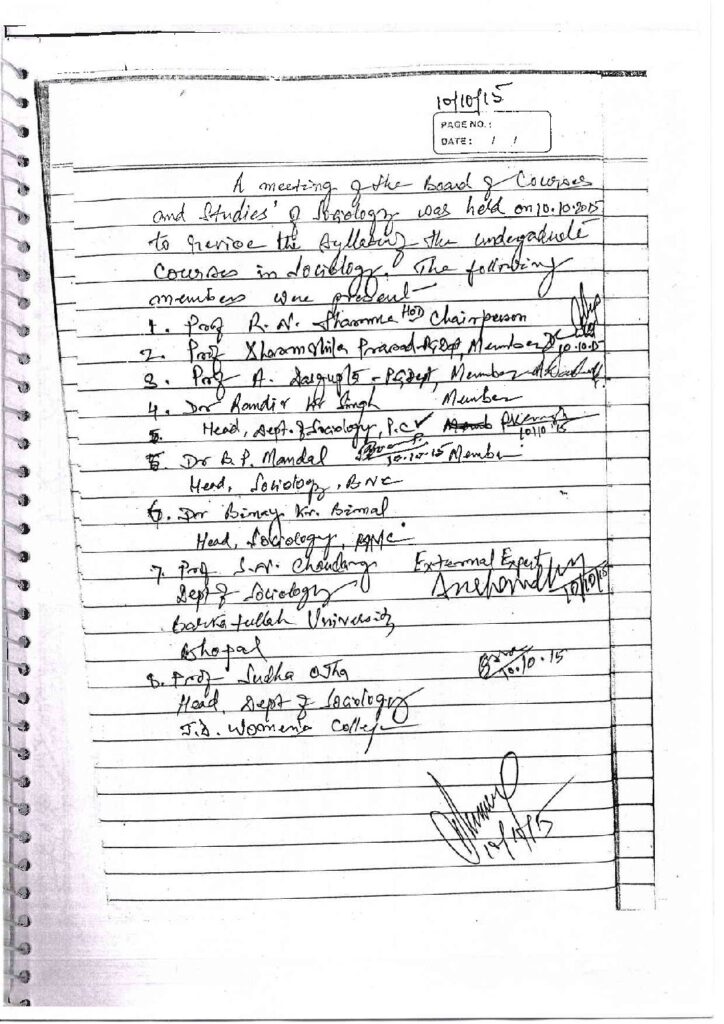 10/10/15
PAGE NO.:
DATE: / /
A meeting of the Board of Courses
and Studies' of Sociology was held on 10.10.2015
to revise the Syllabus of the undergraduate
Courses in Sociology. The following
members were present-
1. Prof R. N. Sharma HOD Chairperson
2. Prof Prasad - PG Dept, Member 10.10.15
3. Prof A. Dasgupta - PG Dept, Member
4. Dr Randir Kr Singh Member
5. Head, Dept. of Sociology, P.C ✓ 10/10/15
5. Dr B. P. Mandal 10.10.15 Member
Head, Sociology, BNC
6. Dr Binay Kr. Bimal
Head, Sociology,
7. Prof S. N. Choudhary External Expert
Dept of Sociology 10/10/15
Barkatullah University
Bhopal
8. Prof Sudha Ojha 10.10.15
Head, Dept of Sociology
J.D. Women's College
10/10/15